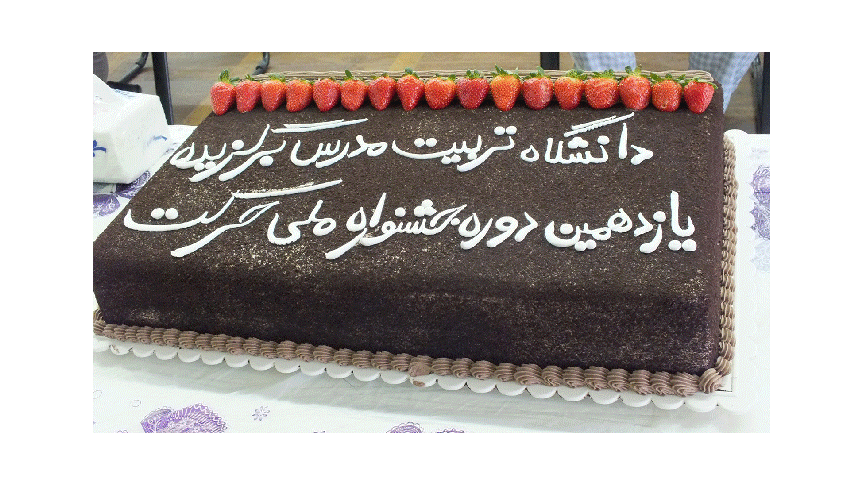 دانشگاه تربیت مدرس برگزیده
یازدهمین دوره جشنواره ملی حرکت